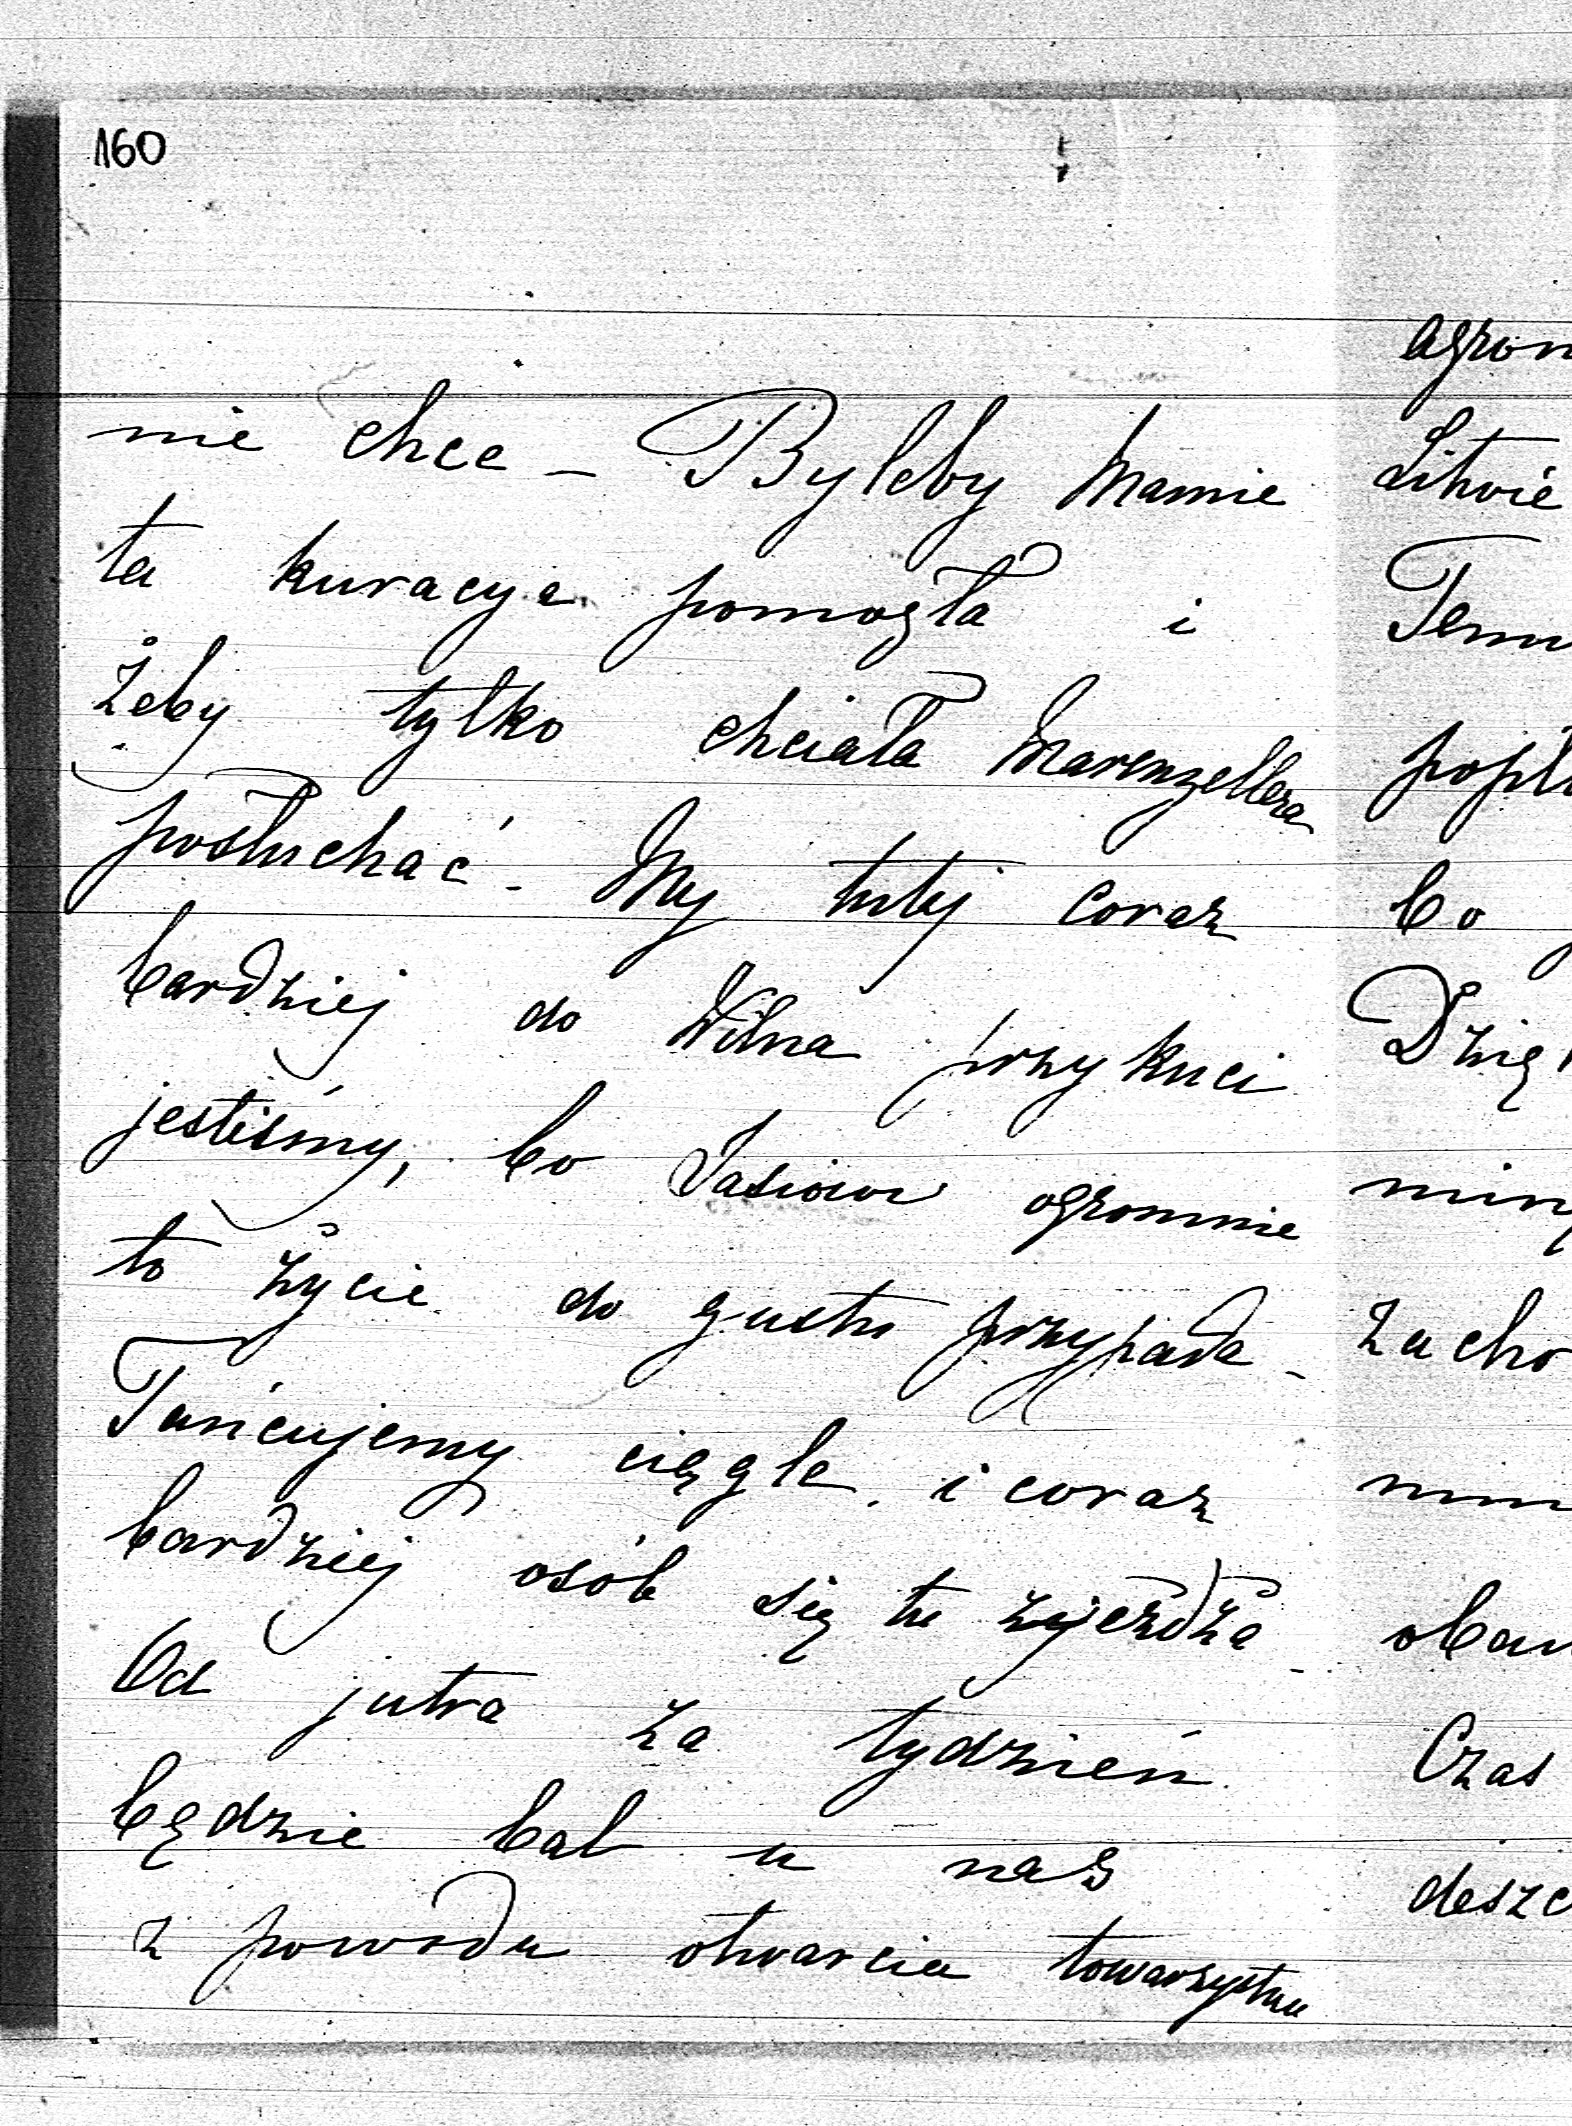 160
nie chce – Byleby Mamie
ta kuracya pomogła i
żeby tylko chciała Marenzellera
posłuchać – My tutaj coraz
bardziej do Wilna przykuci
jesteśmy, bo Jasiowi ogromnie
to życie do gustu przypada –
Tańcujemy ciągle i coraz
bardziej osób się tu zjeżdża –
Od jutra za tydzień
będzie bal u nas
z powodu otwarcia towarzystwa
Litwie
bo
Czas